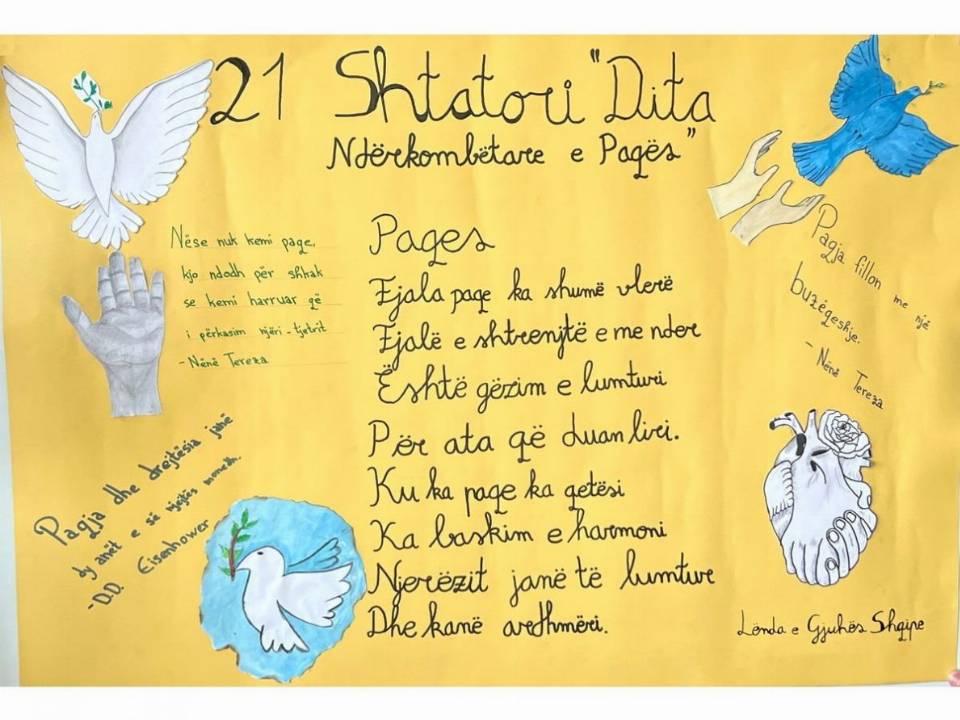 21 Shtatori "Dita
Ndërkombëtare e Paqës"
Nëse nuk kemi paqe,
kjo ndodh për shkak
se kemi harruar që
i përkasim njëri-tjetrit
-Nënë Tereza
Paqes
Fjala paqe ka shumë vlerë
Fjalë e shtrenjtë e me nder
Është gëzim e lumturi
Për ata që duan liri.
Ku ka paqe ka qetësi
Ka baskim e harmoni
Njerëzit janë të lumtur
Dhe kanë ardhmëri.
Paqja fillon me një
buzëqeshje.
- Nënë Tereza
Paqja dhe drejtësia janë
dy anët e së njejtës monedh.
-D.D. Eisenhower
Lënda e Gjuhës Shqipe